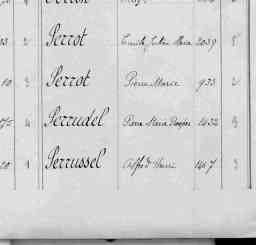 2 Perrot Emile Julien Marie 2039
10 2 Perrot Pierre Marie 933 2
4 Perrudel Pierre Marie 1432 3
20 1 Perrussel Alfred Henri 1407 3